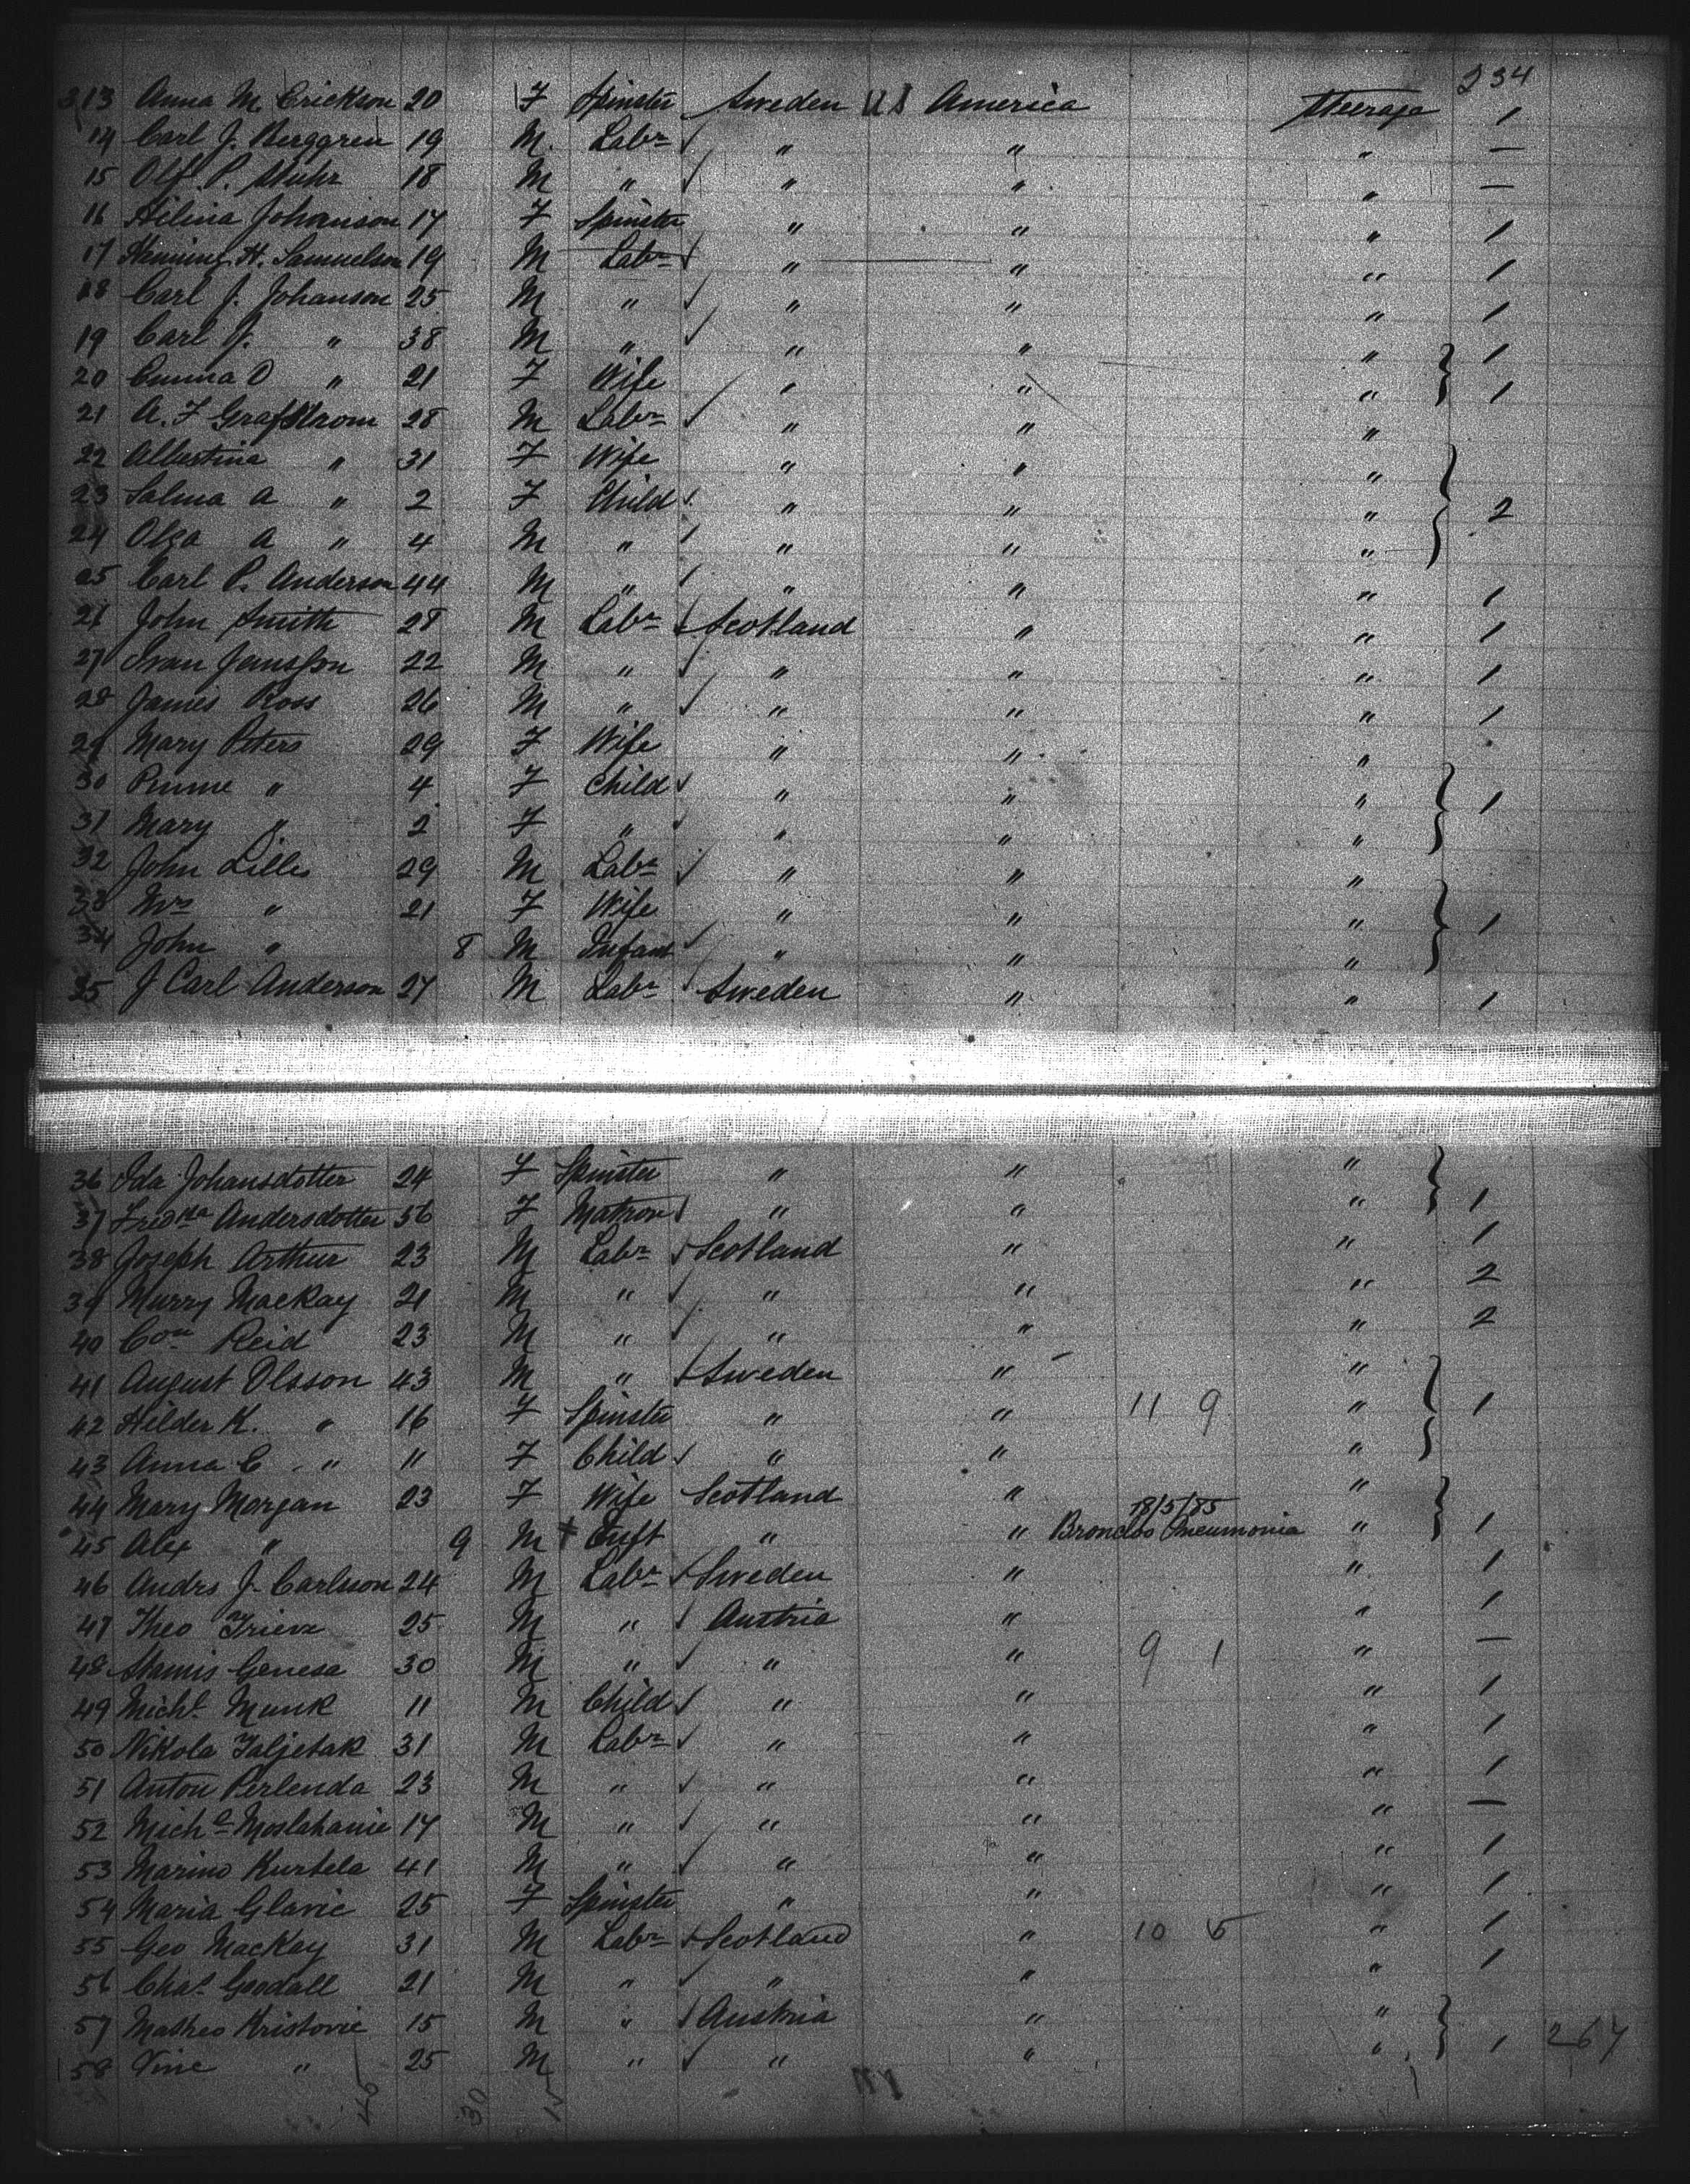 234
313 Anna M Erickson 20 F Spinster Sweden U S America Steerage 1
14 Carl J. Berggren 19 M. Labr " " " —
15 Olf. P. 18 M " " " " —
16 Hilina Johanson 17 F Spinster " " " 1
17 Henning H. Samuelson 19 M Labr " " " 1
18 Carl J. Johanson 25 M " " " " 1
19 Carl J. " 38 M " " " " 1
20 Emma O " 21 F Wife " " " 1
21 A. F Grafstrom 28 M Labr " " "
22 Albertina " 31 F Wife " " "
23 Salma A " 2 F Child " " " 2
24 Olga A " 4 M " " " "
25 Carl P. Anderson 44 M " " " " 1
26 John Smith 28 M Labr Scotland " " 1
27 Ivan Jamsson 22 M " " " " 1
28 James Ross 26 M " " " " 1
29 Mary Peters 29 F Wife " " "
30 " 4 F Child " " " 1
31 Mary " 2 F " " " "
32 John Lilles 29 M Labr " " "
33 Mrs " 21 F Wife " " " 1
34 John " 8 M Infant " " "
35 J Carl Anderson 27 M Labr Sweden " " 1
36 Ida Johansdotter 24 F Spinster " " "
37 Fredka Andersdotter 56 F Matron " " " 1
38 Joseph Arthur 23 M Labr Scotland " " 1
39 Murry Mackay 21 M " " " " 2
40 Reid 23 M " " " " 2
41 August Olsson 43 M " Sweden " "
42 Hilder K. " 16 F Spinster " " 11 9 " 1
43 Anna C " 11 F Child " " "
44 Mary Morgan 23 F Wife Scotland " "
18/5/85
45 Alex " 9 M + Inft " " Broncho Pneumonia " 1
46 Andrs J. Carlson 24 M Labr Sweden " " 1
47 Theo 25 M " Austria " " 1
48 Stanis Genesa 30 M " " " 9 1 " —
49 Michl Munk 11 M Child " " " 1
50 Nikola Taljetak 31 M Labr " " " 1
51 Anton Perlenda 23 M " " " " 1
52 Michl 17 M " " " " —
53 Marino Kurtela 41 M " " " " 1
54 Maria Glavic 25 F Spinster " " " 1
55 Geo MacKay 31 M Labr Scotland " 10 5 " 1
56 Chas Goodall 21 M " " " " 1
57 Matheo Kristovic 15 M " Austria " "
58 Vinc " 25 M " " " " 1 267